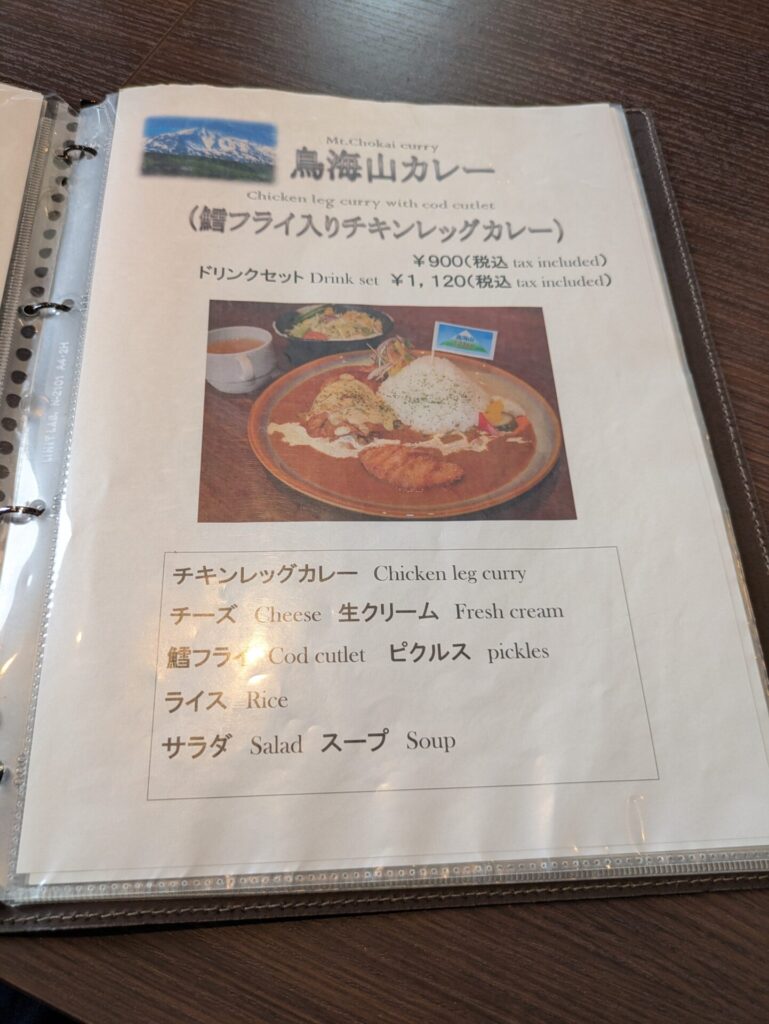 Mt.Chokai curry
鳥海山カレー
Chicken leg curry with cod cutlet
（鱈フライ入りチキンレッグカレー）
￥900（税込 tax included）
ドリンクセット Drink set ￥1，120（税込 tax included）
鳥海山
チキンレッグカレー Chicken leg curry
チーズ Cheese 生クリーム Fresh cream
鱈フライ Cod cutlet ピクルス pickles
ライス Rice
サラダ Salad スープ Soup